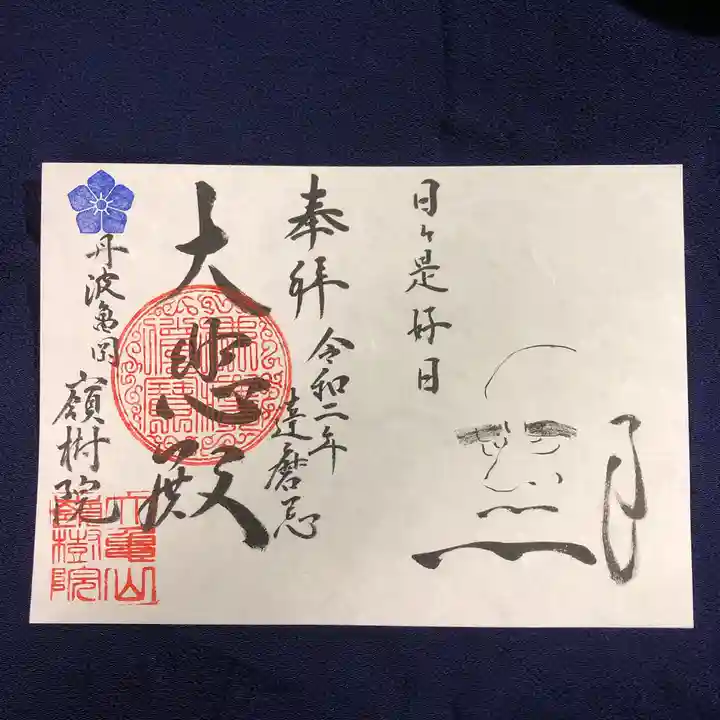 日々是好日
奉拝
令和二年
達磨忌
大悲殿
丹波亀岡
嶺樹院
六亀山
嶺樹院